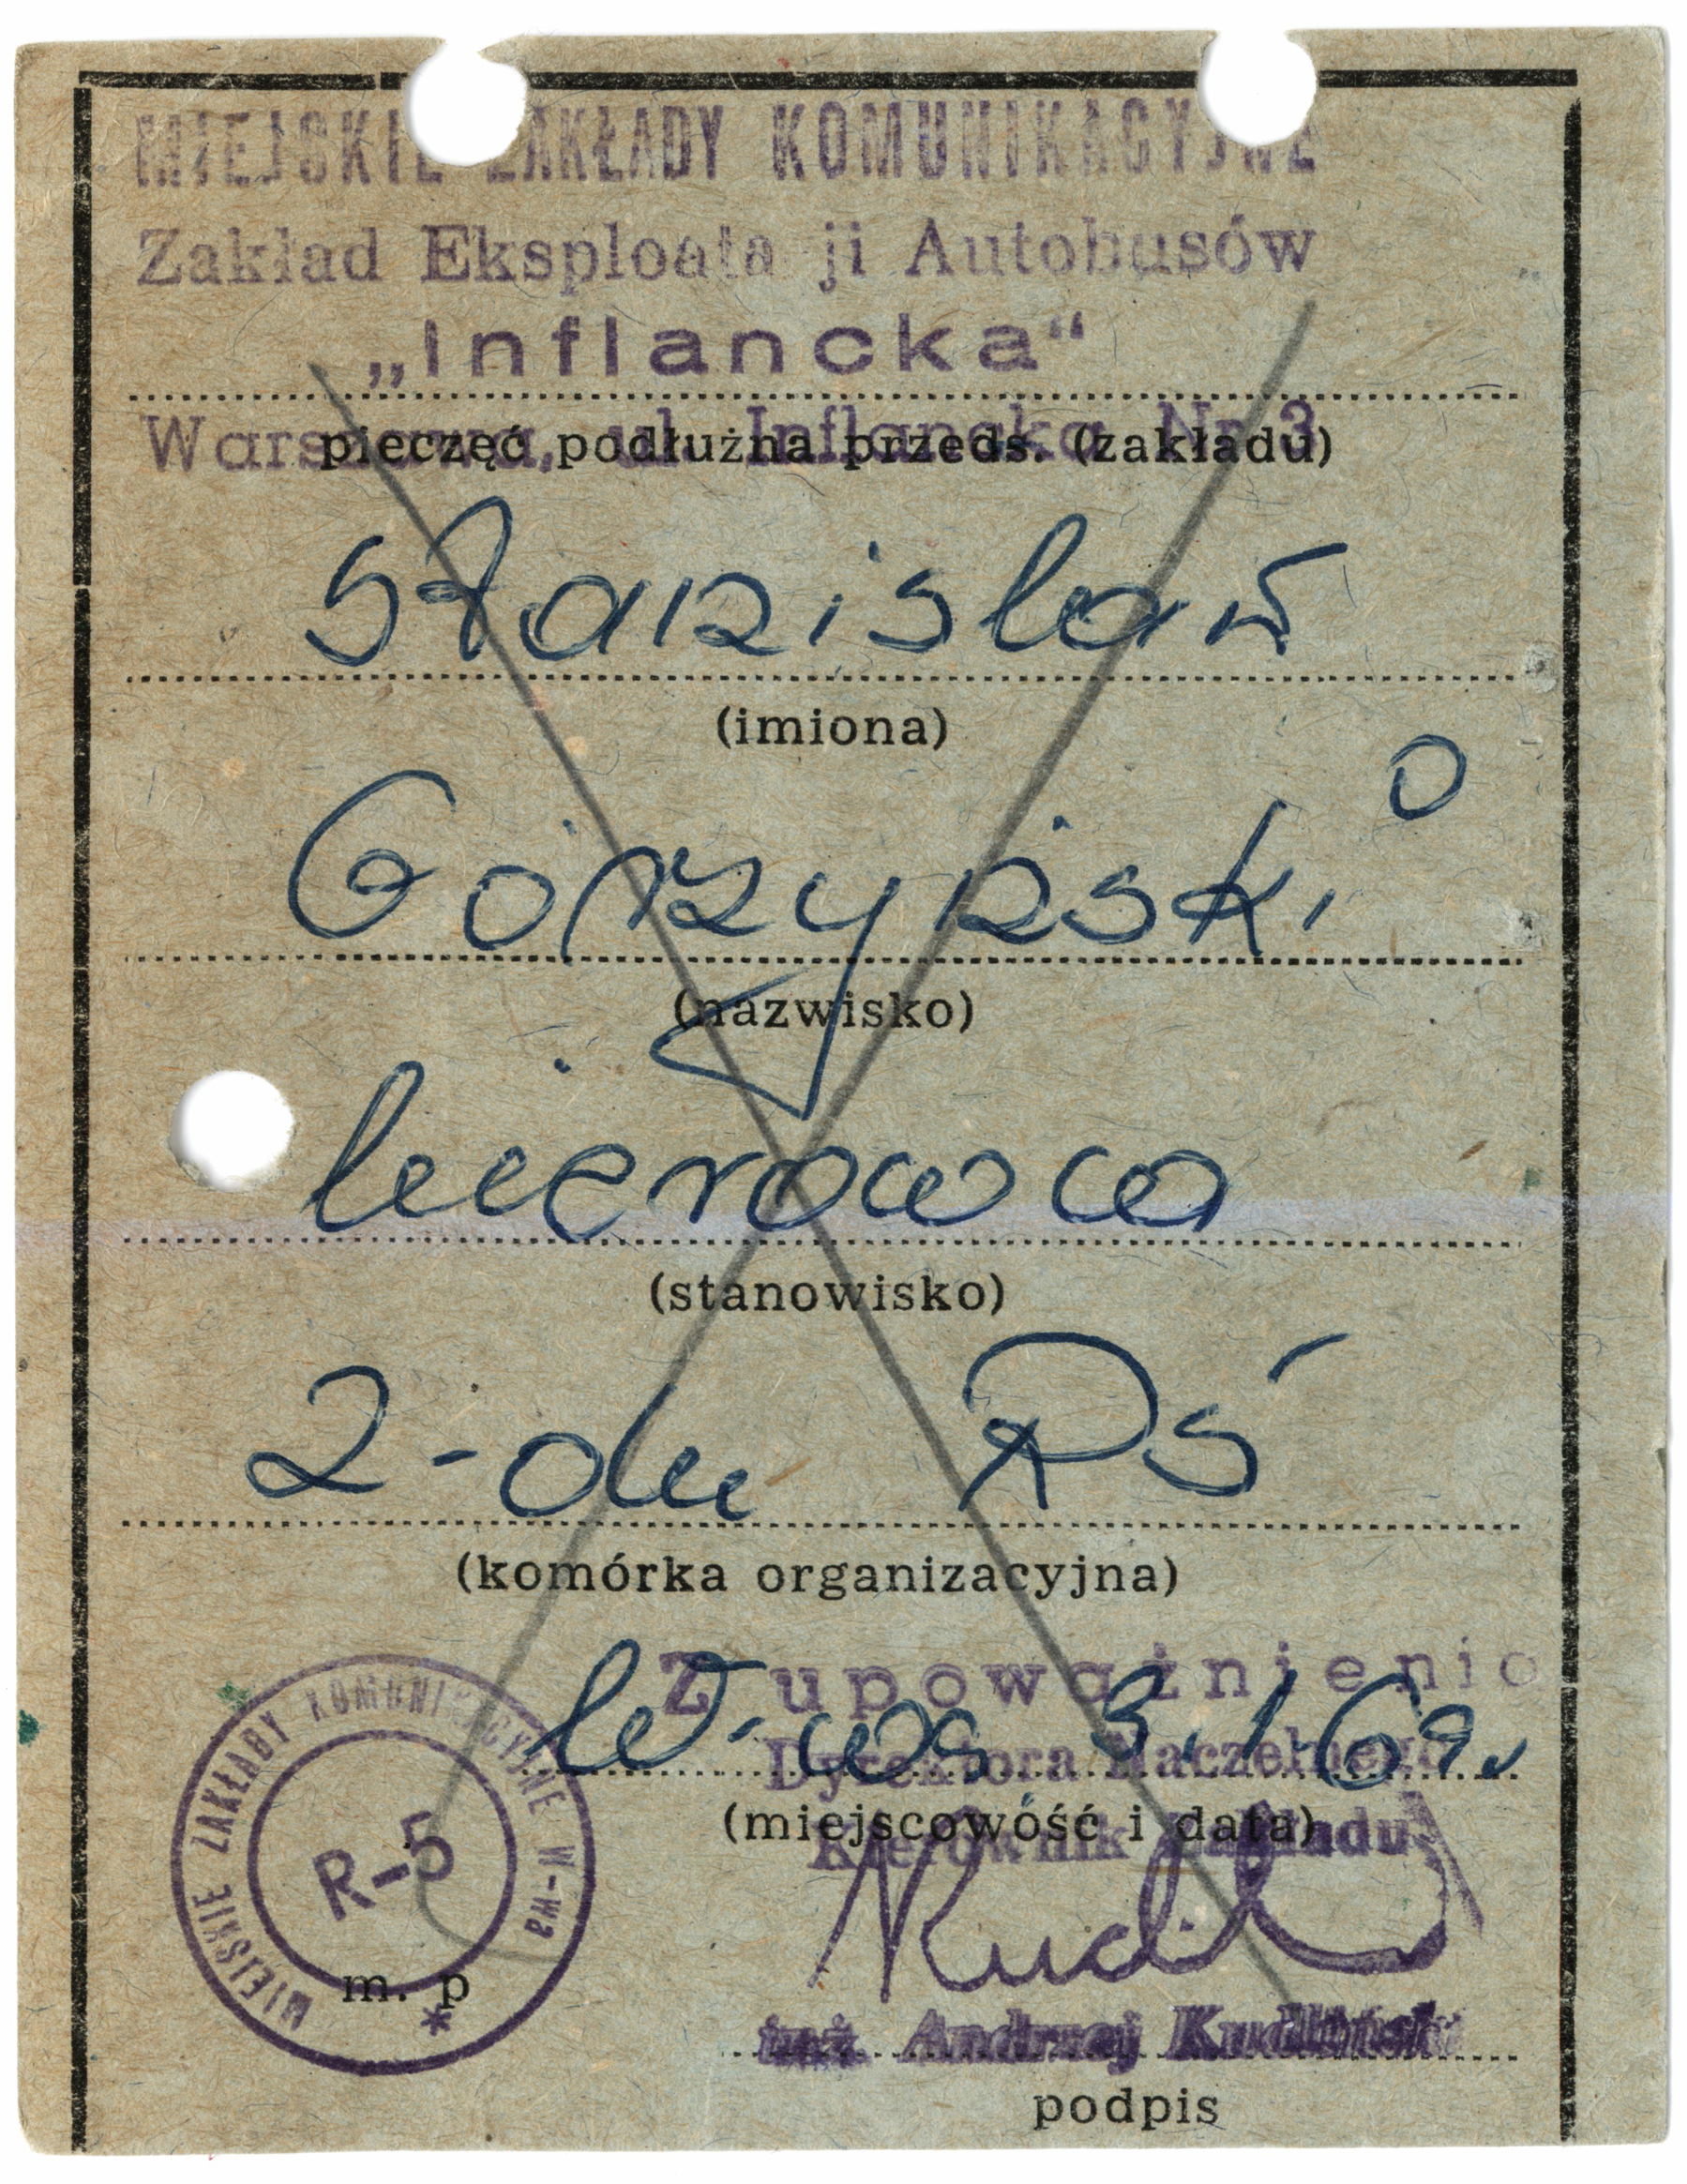 MIEJSKIE ZAKŁADY KOMUNIKACYJNE
Zakład Eksploata ji Autobusów
„Inflancka“
Warszawa, ul. Inflancka Nr 3
pieczęć podłużna przeds. (zakładu)
Stanisław
(imiona)
Górzyński
(nazwisko)
kierowca
(stanowisko)
2-du
(komórka organizacyjna)
Z upoważnienia
W-wa 3.1.69r
Dyrektora Naczelnego
(miejscowość i data)
Kierownik Zakładu
MIEJSKIE ZAKŁADY KOMUNIKACYJNE W-wa
R-5
m. p
inż. Andrzej Kudliński
podpis